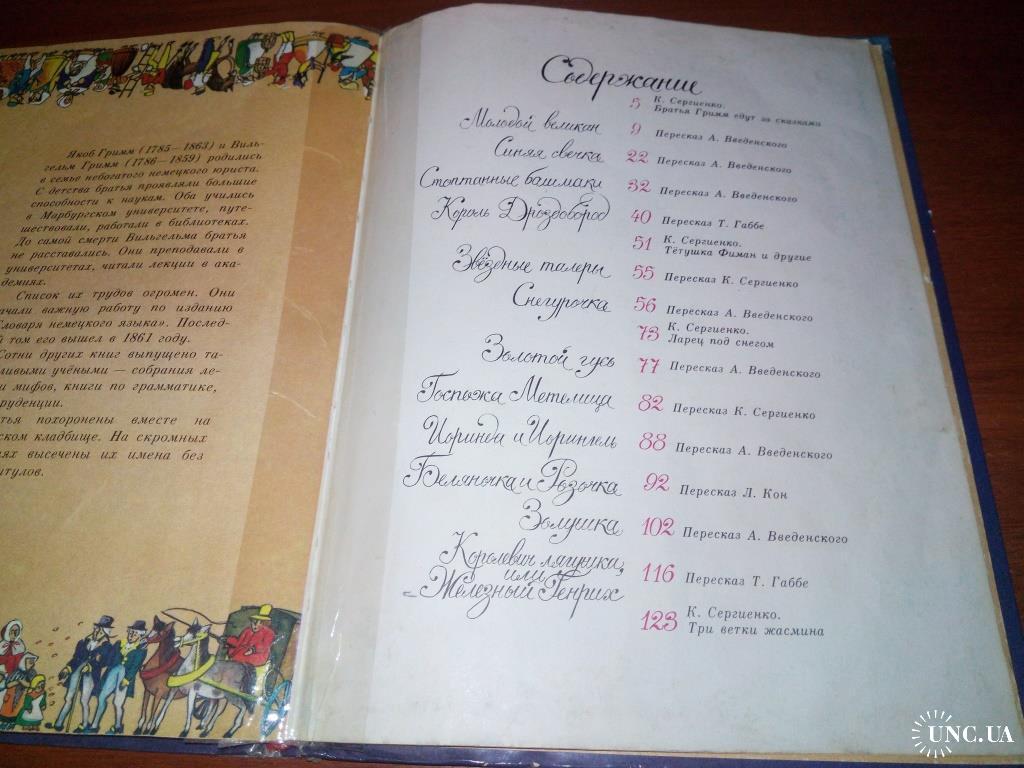 Якоб Гримм (1785—1863) и Виль-
гельм Гримм (1786—1859) родились
в семье небогатого немецкого юриста.
С детства братья проявляли большие
способности к наукам. Оба учились
в Марбургском университете, путе-
шествовали, работали в библиотеках.
До самой смерти Вильгельма братья
не расставались. Они преподавали в
университетах, читали лекции в ака-
демиях.
Список их трудов огромен. Они
важную работу по изданию
немецкого языка». Послед-
том его вышел в 1861 году.
Сотни других книг выпущено та-
учёными — собрания ле-
мифов, книги по грамматике,
похоронены вместе на
кладбище. На скромных
высечены их имена без
Содержание
5 К. Сергиенко.
Братья Гримм едут за сказками
Молодой великан 9 Пересказ А. Введенского
Синяя свечка 22 Пересказ А. Введенского
Стоптанные башмаки 32 Пересказ А. Введенского
Король Дроздобород 40 Пересказ Т. Габбе
51 К. Сергиенко.
Тётушка Фиман и другие
Звёздные талеры 55 Пересказ К. Сергиенко
Снегурочка 56 Пересказ А. Введенского
73 К. Сергиенко.
Ларец под снегом
Золотой гусь 77 Пересказ А. Введенского
Госпожа Метелица 82 Пересказ К. Сергиенко
Иоринда и Иорингель 88 Пересказ А. Введенского
Беляночка и Розочка 92 Пересказ Л. Кон
Золушка 102 Пересказ А. Введенского
Королевич-лягушка,
или
Железный Генрих 116 Пересказ Т. Габбе
123 К. Сергиенко.
Три ветки жасмина
UNC.UA